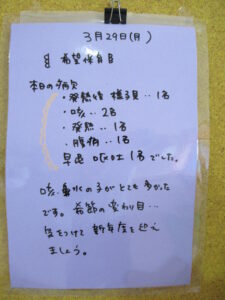 3月29日(月)
希望保育日
本日の病欠
・発熱後 様子見‥1名
・咳‥2名
・発熱‥1名
・腹痛‥1名
早退 嘔吐 1名でした。
咳、鼻水の子がとても多かった
です。季節の変わり目…
気をつけて新年度を迎え
ましょう。